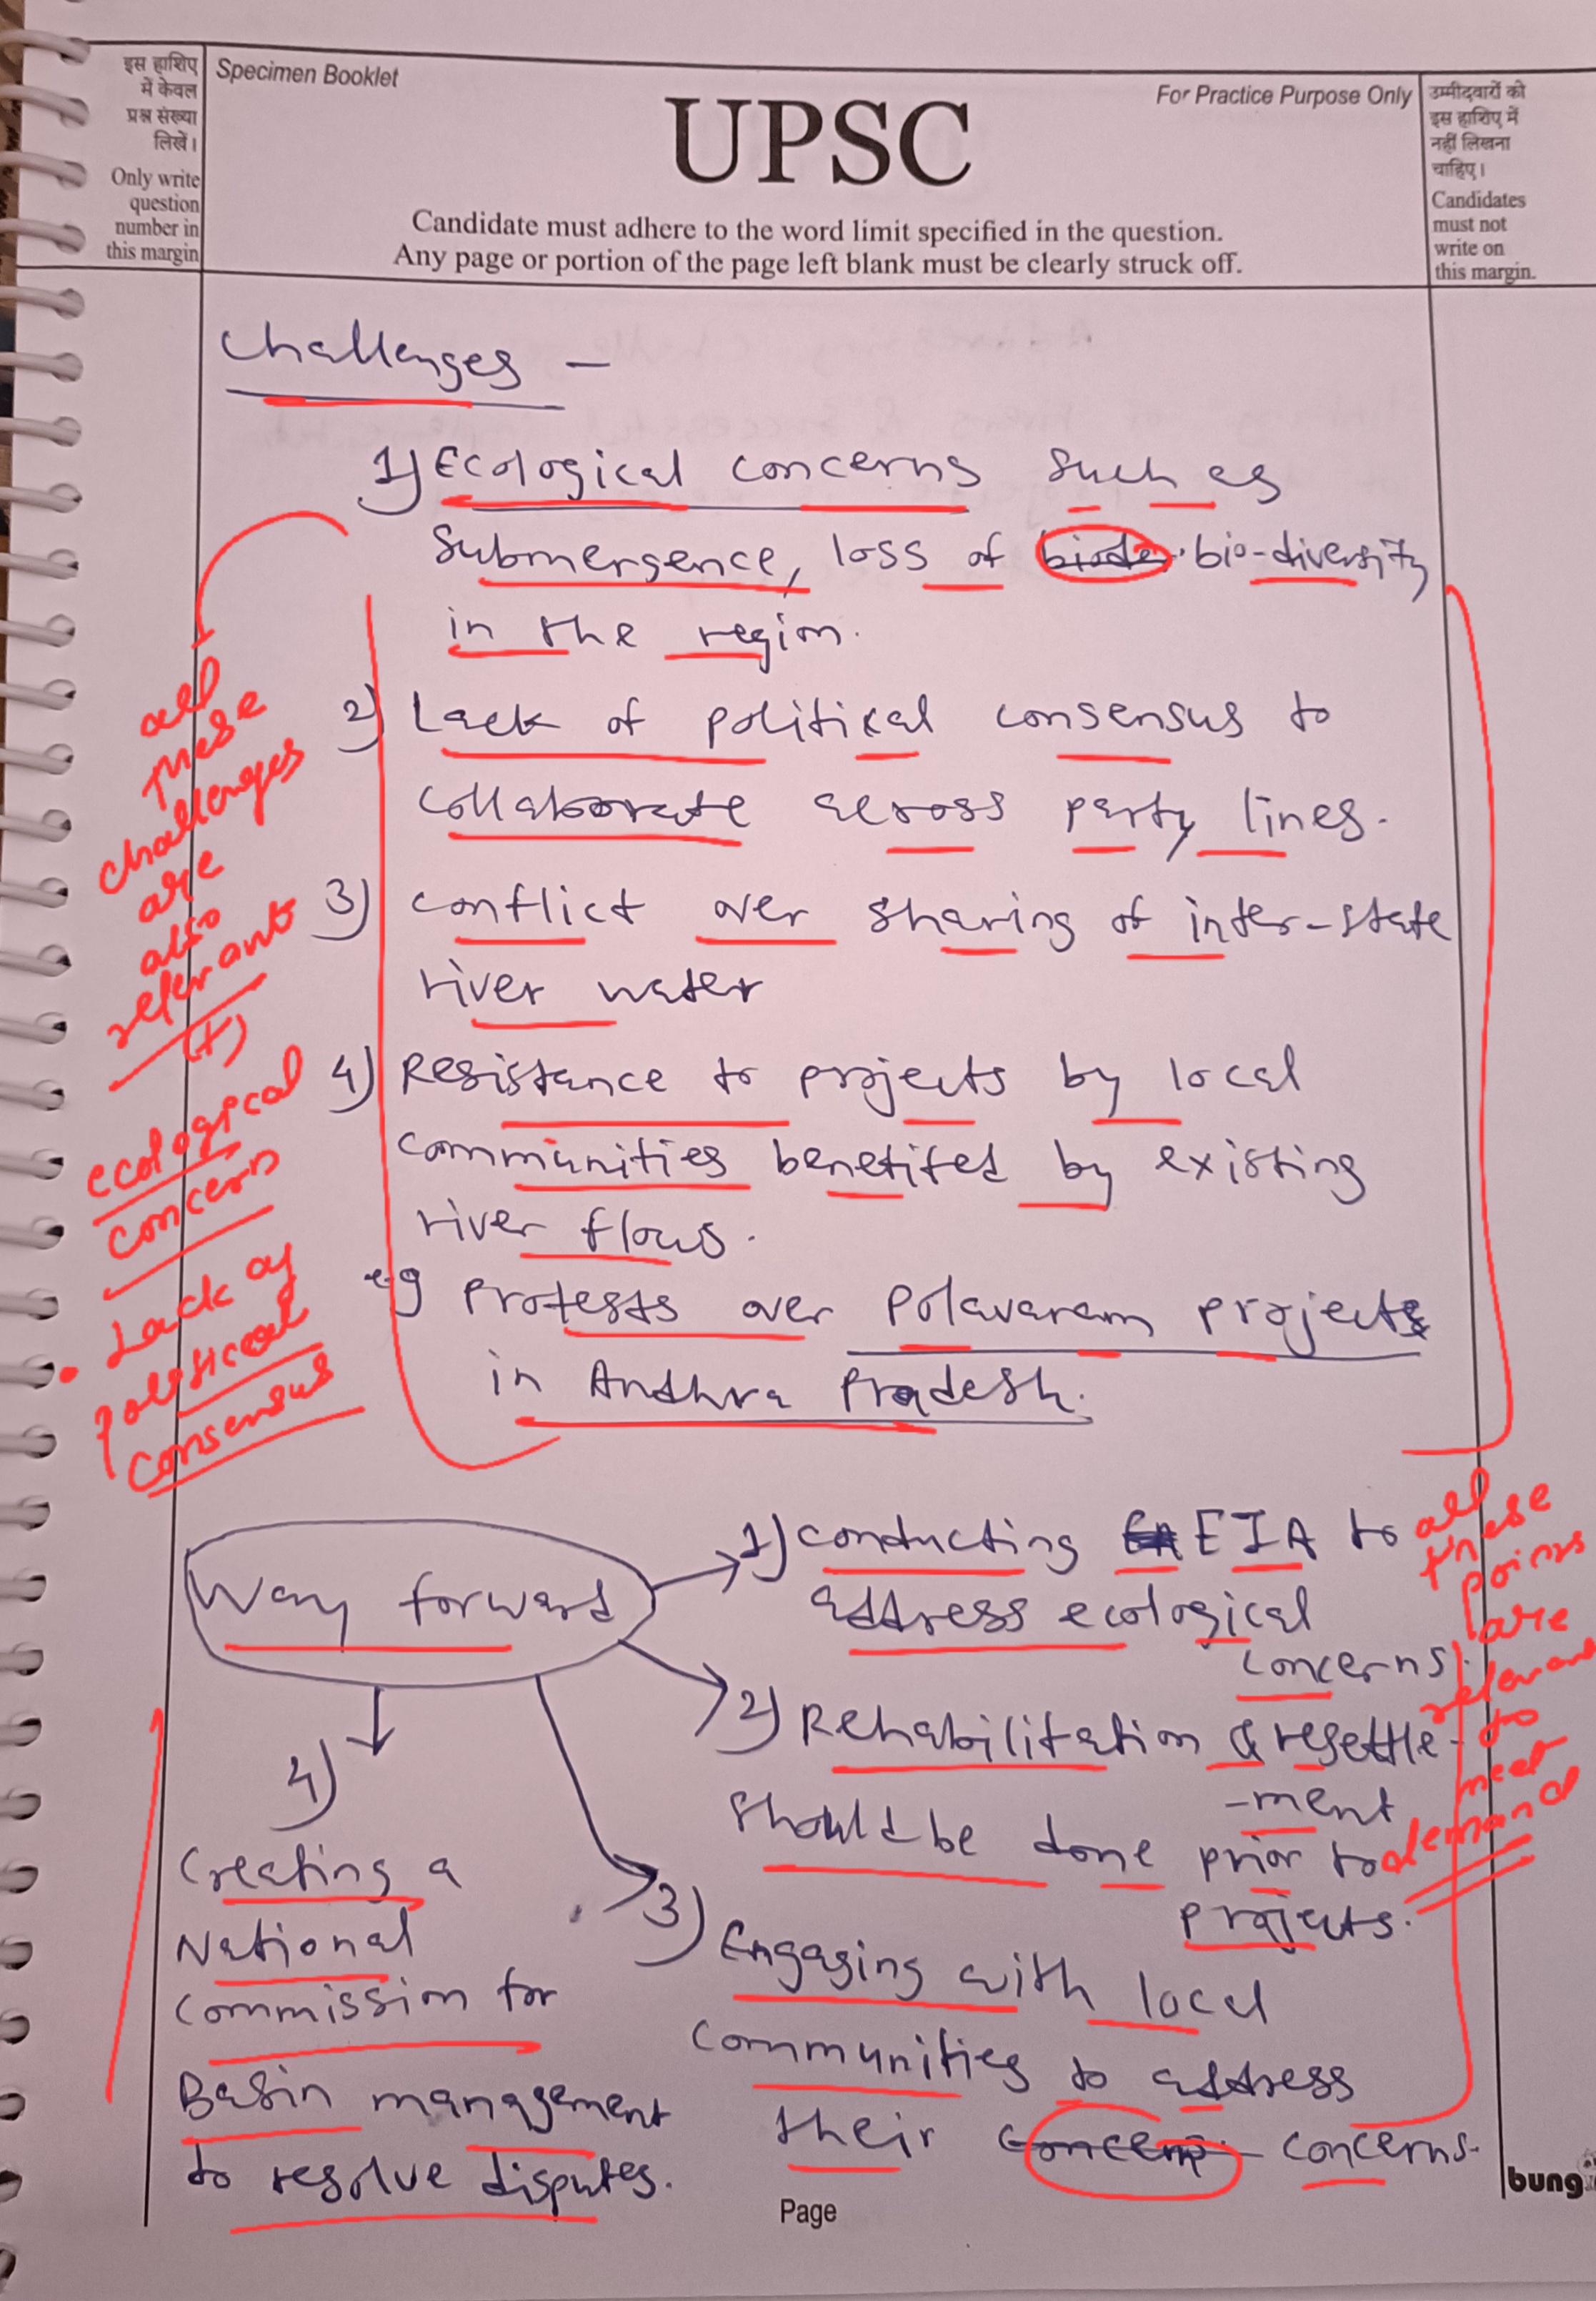 इस हाशिए
में केवल
प्रश्न संख्या
लिखें।
Only write
question
number in
this margin
Specimen Booklet
For Practice Purpose Only
UPSC
Candidate must adhere to the word limit specified in the question.
Any page or portion of the page left blank must be clearly struck off.
उम्मीदवारों को
इस हाशिए में
नहीं लिखना
चाहिए।
Candidates
must not
write on
this margin.
Challenges -
1) Ecological concerns such as
submergence, loss of bio-diversity
in the region.
2) Lack of political consensus to
collaborate across party lines.
3) conflict over sharing of inter-state
river water
4) Resistance to projects by local
communities benefited by existing
river flows.
eg Protests over Polavaram project
in Andhra Pradesh.
all
these
challenges
are
also
relevant
(+)
ecological
concern
• Lack of
political
consensus
Way forward
1) conducting EIA to
address ecological
concerns.
2) Rehabilitation & resettle-
-ment
should be done prior to
projects.
3) Engaging with local
communities to address
their concerns.
4)
Creating a
National
Commission for
Basin management
to resolve disputes.
all
these
points
are
relevant
to
meet
demand
Page
bung